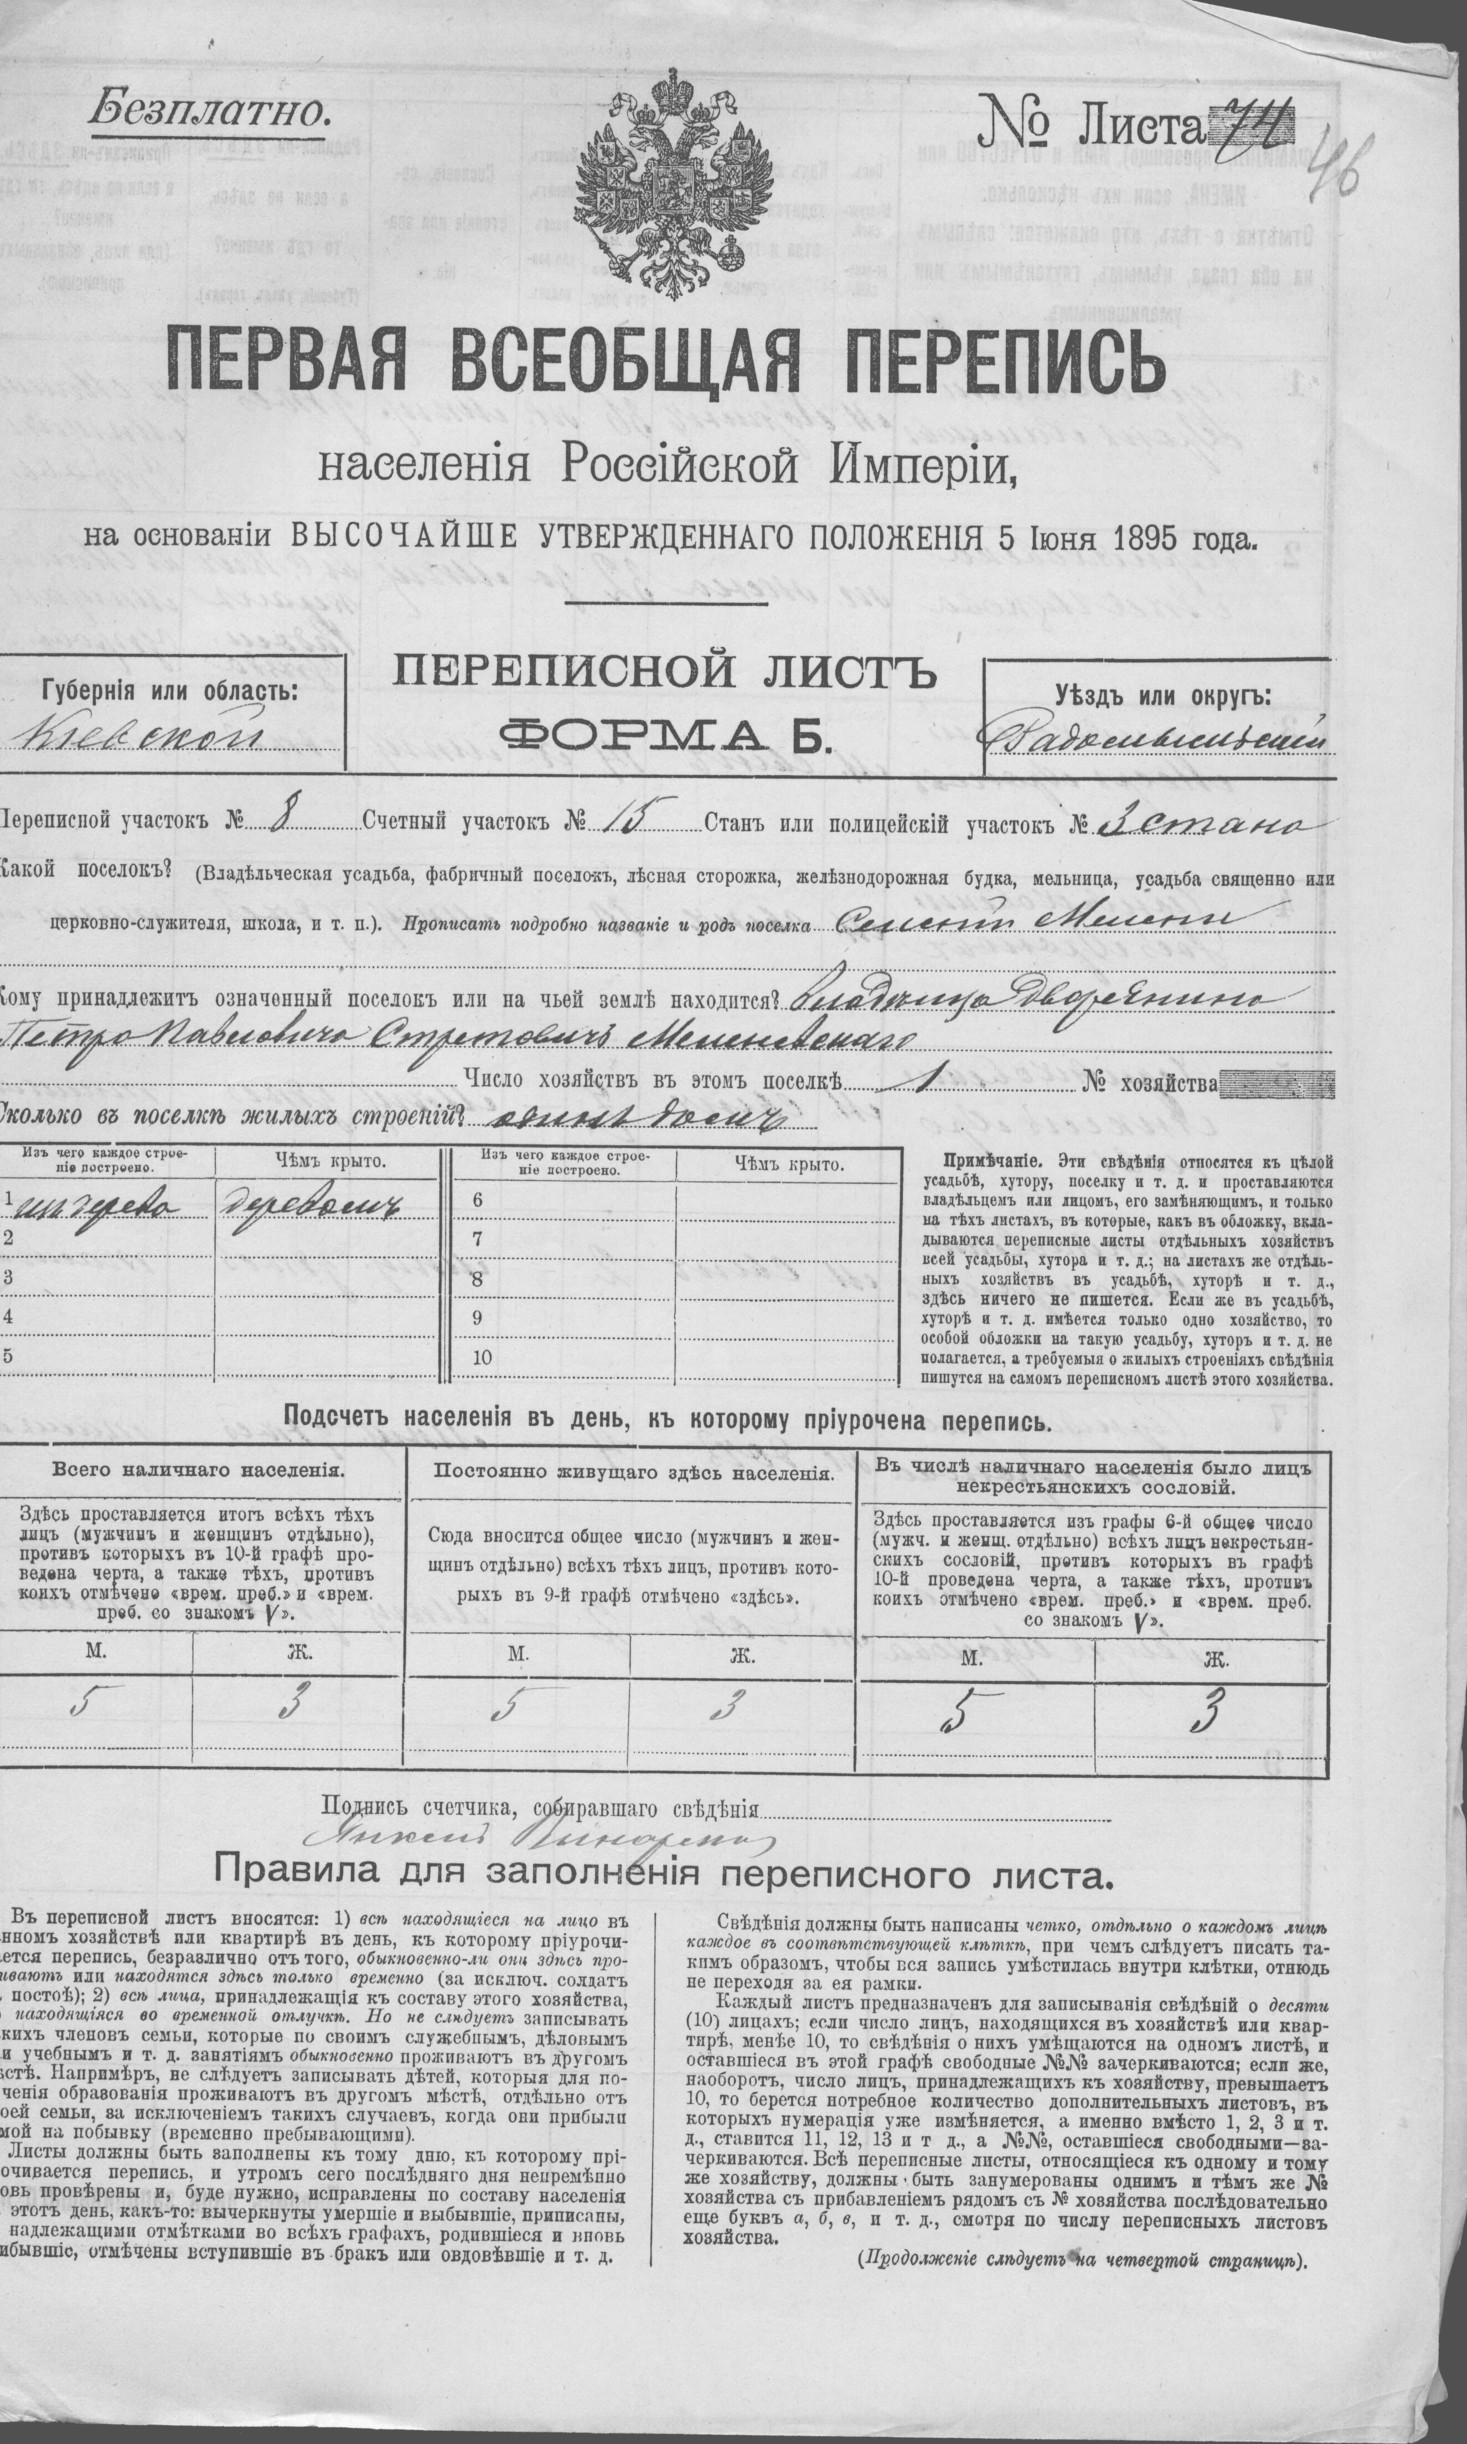 Безплатно.
№ Листа 74
46
ПЕРВАЯ ВСЕОБЩАЯ ПЕРЕПИСЬ
населенія Россійской Имперіи,
на основаніи ВЫСОЧАЙШЕ УТВЕРЖДЕННАГО ПОЛОЖЕНІЯ 5 Іюня 1895 года.
ПЕРЕПИСНОЙ ЛИСТЪ
ФОРМА Б.
Губернія или область:
Кіевской
Уѣздъ или округъ:
Радомысльскій
Переписной участокъ № 8 Счетный участокъ № 15 Станъ или полицейскій участокъ № 3 стана
Какой поселокъ? (Владѣльческая усадьба, фабричный поселокъ, лѣсная сторожка, желѣзнодорожная будка, мельница, усадьба священно или
церковно-служителя, школа, и т. п.). Прописать подробно названіе и родъ поселка Мелени
Кому принадлежитъ означенный поселокъ или на чьей землѣ находится? Дворянина
Петра Павловича Меленевскаго
Число хозяйствъ въ этомъ поселкѣ 1 № хозяйства
Сколько въ поселкѣ жилыхъ строеній? одинъ домъ
Изъ чего каждое строе-
ніе построено.
Чѣмъ крыто.
Изъ чего каждое строе-
ніе построено.
Чѣмъ крыто.
1 изъ дерева деревомъ 6
2 7
3 8
4 9
5 10
Примѣчаніе. Эти свѣдѣнія относятся къ цѣлой
усадьбѣ, хутору, поселку и т. д. и проставляются
владѣльцемъ или лицомъ, его замѣняющимъ, и только
на тѣхъ листахъ, въ которые, какъ въ обложку, вкла-
дываются переписные листы отдѣльныхъ хозяйствъ
всей усадьбы, хутора и т. д.; на листахъ же отдѣль-
ныхъ хозяйствъ въ усадьбѣ, хуторѣ и т. д.,
здѣсь ничего не пишется. Если же въ усадьбѣ,
хуторѣ и т. д. имѣется только одно хозяйство, то
особой обложки на такую усадьбу, хуторъ и т. д. не
полагается, а требуемыя о жилыхъ строеніяхъ свѣдѣнія
пишутся на самомъ переписномъ листѣ этого хозяйства.
Подсчетъ населенія въ день, къ которому пріурочена перепись.
Всего наличнаго населенія.
Здѣсь проставляется итогъ всѣхъ тѣхъ
лицъ (мужчинъ и женщинъ отдѣльно),
противъ которыхъ въ 10-й графѣ про-
ведена черта, а также тѣхъ, противъ
коихъ отмѣчено «врем. преб.» и «врем.
преб. со знакомъ V».
М. Ж.
5 3
Постоянно живущаго здѣсь населенія.
Сюда вносится общее число (мужчинъ и жен-
щинъ отдѣльно) всѣхъ тѣхъ лицъ, противъ кото-
рыхъ въ 9-й графѣ отмѣчено «здѣсь».
М. Ж.
5 3
Въ числѣ наличнаго населенія было лицъ
некрестьянскихъ сословій.
Здѣсь проставляется изъ графы 6-й общее число
(мужч. и женщ. отдѣльно) всѣхъ лицъ некрестьян-
скихъ сословій, противъ которыхъ въ графѣ
10-й проведена черта, а также тѣхъ, противъ
коихъ отмѣчено «врем. преб.» и «врем. преб.
со знакомъ V».
М. Ж.
5 3
Подпись счетчика, собиравшаго свѣдѣнія
Правила для заполненія переписного листа.
Въ переписной листъ вносятся: 1) всѣ находящіеся на лицо въ
нномъ хозяйствѣ или квартирѣ въ день, къ которому пріурочи-
ется перепись, безразлично отъ того, обыкновенно-ли они здѣсь про-
иваютъ или находятся здѣсь только временно (за исключ. солдатъ
постоѣ); 2) всѣ лица, принадлежащія къ составу этого хозяйства,
находящіяся во временной отлучкѣ. Но не слѣдуетъ записывать
кихъ членовъ семьи, которые по своимъ служебнымъ, дѣловымъ
и учебнымъ и т. д. занятіямъ обыкновенно проживаютъ въ другомъ
стѣ. Напримѣръ, не слѣдуетъ записывать дѣтей, которыя для по-
ченія образованія проживаютъ въ другомъ мѣстѣ, отдѣльно отъ
оей семьи, за исключеніемъ такихъ случаевъ, когда они прибыли
мой на побывку (временно пребывающими).
Листы должны быть заполнены къ тому дню, къ которому прі-
очивается перепись, и утромъ сего послѣдняго дня непремѣнно
овь провѣрены и, буде нужно, исправлены по составу населенія
этотъ день, какъ-то: вычеркнуты умершіе и выбывшіе, приписаны,
надлежащими отмѣтками во всѣхъ графахъ, родившіеся и вновь
ибывшіе, отмѣчены вступившіе въ бракъ или овдовѣвшіе и т. д.
Свѣдѣнія должны быть написаны четко, отдѣльно о каждомъ лицѣ
каждое въ соотвѣтствующей клѣткѣ, при чемъ слѣдуетъ писать та-
кимъ образомъ, чтобы вся запись умѣстилась внутри клѣтки, отнюдь
не переходя за ея рамки.
Каждый листъ предназначенъ для записыванія свѣдѣній о десяти
(10) лицахъ; если число лицъ, находящихся въ хозяйствѣ или квар-
тирѣ, менѣе 10, то свѣдѣнія о нихъ умѣщаются на одномъ листѣ, и
оставшіеся въ этой графѣ свободные №№ зачеркиваются; если же,
наоборотъ, число лицъ, принадлежащихъ къ хозяйству, превышаетъ
10, то берется потребное количество дополнительныхъ листовъ, въ
которыхъ нумерація уже измѣняется, а именно вмѣсто 1, 2, 3 и т.
д., ставится 11, 12, 13 и т д., а №№, оставшіеся свободными—за-
черкиваются. Всѣ переписные листы, относящіеся къ одному и тому
же хозяйству, должны быть занумерованы однимъ и тѣмъ же №
хозяйства съ прибавленіемъ рядомъ съ № хозяйства послѣдовательно
еще буквъ а, б, в, и т. д., смотря по числу переписныхъ листовъ
хозяйства.
(Продолженіе слѣдуетъ на четвертой страницѣ).